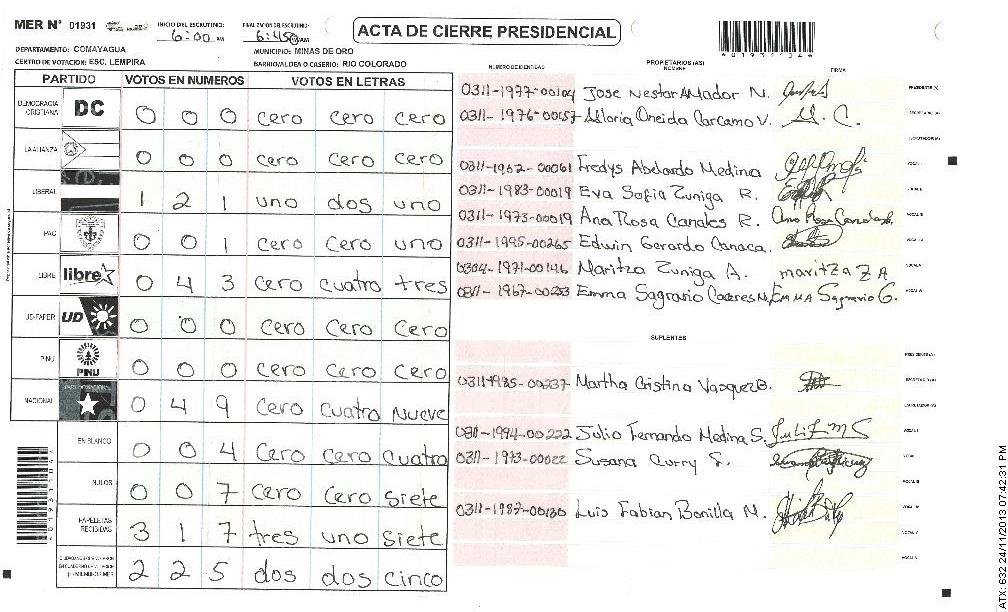 MER Nº 01931
INICIO DEL ESCRUTINIO: 6:00 PM
FINALIZACIÓN DEL ESCRUTINIO: 6:45
ACTA DE CIERRE PRESIDENCIAL
DEPARTAMENTO: COMAYAGUA
MUNICIPIO: MINAS DE ORO
CENTRO DE VOTACION: ESC. LEMPIRA
BARRIO/ALDEA O CASERIO: RIO COLORADO
PARTIDO VOTOS EN NUMEROS VOTOS EN LETRAS
DEMOCRACIA CRISTIANA DC 0 0 0 cero cero cero
LA ALIANZA 0 0 0 cero cero cero
LIBERAL 1 2 1 uno dos uno
PAC 0 0 1 cero cero uno
LIBRE libre 0 4 3 cero cuatro tres
UD-FAPER UD 0 0 0 cero cero cero
PINU PINU 0 0 0 cero cero cero
NACIONAL 0 4 9 cero cuatro nueve
EN BLANCO 0 0 4 cero cero cuatro
NULOS 0 0 7 cero cero siete
PAPELETAS RECIBIDAS 3 1 7 tres uno siete
2 2 5 dos dos cinco
NUMERO DE IDENTIDAD PROPIETARIOS (AS) NOMBRE FIRMA
0311-1977-00104 Jose Nestor Amador N. PRESIDENTE (A)
0311-1976-00157 Gloria Oneida Carcamo V. SECRETARIO (A)
ESCRUTADOR (A)
0311-1962-00061 Fredys Abelardo Medina VOCAL I
0311-1983-00019 Eva Sofia Zuniga R. VOCAL II
0311-1973-00019 Ana Rosa Canales R. Ana Rosa Canales R. VOCAL III
0311-1995-00265 Edwin Gerardo Canaca. VOCAL IV
0304-1971-00146 Maritza Zuniga A. maritza Z A VOCAL V
0311-1967-00253 Emma Sagrario Caceres M. EMMA Sagrario C. VOCAL VI
SUPLENTES
PRESIDENTE (A)
0311-1985-00237 Martha Cristina Vasquez B. SECRETARIO (A)
ESCRUTADOR (A)
0311-1994-00222 Julio Fernando Medina S. Julio F M S VOCAL I
0311-1973-00022 Susana Curry S. VOCAL II
VOCAL III
0311-1987-00130 Luis Fabian Bonilla M. VOCAL IV
VOCAL V
VOCAL VI
*01931104*
ATX: 632 24/11/2013 07:42:31 PM